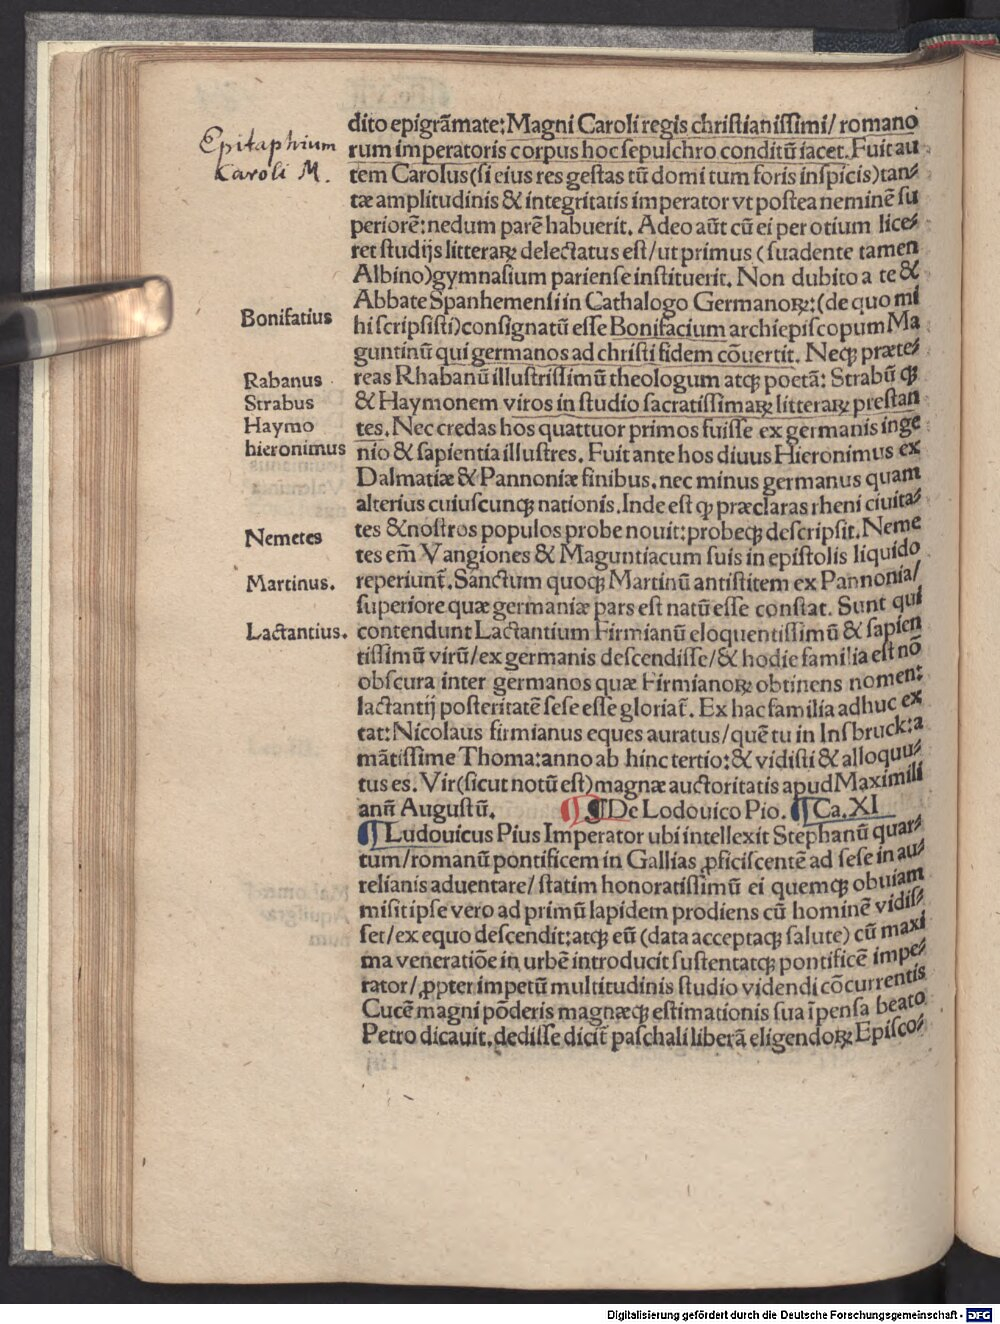 Epitaphium
Karoli M.
dito epigrãmate: Magni Caroli regis christianissimi/ romano
rum imperatoris corpus hoc sepulchro conditũ iacet. Fuit au
tem Carolus (si eius res gestas tũ domi tum foris inspicis) tan⸗
tæ amplitudinis & integritatis imperator vt postea neminẽ su
periorẽ: nedum parẽ habuerit. Adeo aũt cũ ei per otium lice⸗
ret studijs litteraꝝ delectatus est/ ut primus (suadente tamen
Albino) gymnasium pariense instituerit. Non dubito a te &
Abbate Spanhemensi in Cathalogo Germanoꝝ: (de quo mi
Bonifatius
hi scripsisti) consignatũ esse Bonifacium archiepiscopum Ma
guntinũ qui germanos ad christi fidem cõuertit. Neqꝫ præte⸗
Rabanus
reas Rhabanũ illustrissimũ theologum atqꝫ poetã: Strabũ qꝫ
Strabus
& Haymonem viros in studio sacratissimaꝝ litteraꝝ prestan
Haymo
tes. Nec credas hos quattuor primos fuisse ex germanis inge
hieronimus
nio & sapientia illustres. Fuit ante hos diuus Hieronimus ex
Dalmatiæ & Pannoniæ finibus. nec minus germanus quam
alterius cuiuscunqꝫ nationis. Inde est ꝙ præclaras rheni ciuita⸗
tes & nostros populos probe nouit: probeqꝫ descripsit. Neme
Nemetes
tes em̃ Vangiones & Maguntiacum suis in epistolis liquido
Martinus.
reperiunt̃. Sanctum quoqꝫ Martinũ antistitem ex Pannonia/
superiore quæ germaniæ pars est natũ esse constat. Sunt qui
Lactantius.
contendunt Lactantium Firmianũ eloquentissimũ & sapien
tissimũ virũ/ ex germanis descendisse/ & hodie familia est nõ
obscura inter germanos quæ Firmianoꝝ obtinens nomen:
lactantij posteritatẽ sese esse gloriat̃. Ex hac familia adhuc ex
tat: Nicolaus firmianus eques auratus/ quẽ tu in Insbruck: a
mãtissime Thoma: anno ab hinc tertio: & vidisti & alloquu⸗
tus es. Vir (sicut notũ est) magnæ auctoritatis apud Maximili
anũ Augustũ. ¶ ¶ De Lodouico Pio. ¶ Ca. XI
¶ Ludouicus Pius Imperator ubi intellexit Stephanũ quar⸗
tum/ romanũ pontificem in Gallias ꝓficiscentẽ ad sese in au⸗
relianis aduentare/ statim honoratissimũ ei quemqꝫ obuiam
misit ipse vero ad primũ lapidem prodiens cũ hominẽ vidis⸗
set/ ex equo descendit: atqꝫ eũ (data acceptaqꝫ salute) cũ maxi
ma veneratiõe in urbẽ introducit sustentatqꝫ pontificẽ impe⸗
rator/ ꝓpter impetũ multitudinis studio videndi cõcurrentis
Cucẽ magni põderis magnæqꝫ estimationis sua ĩpensa beato
Petro dicauit. dedisse dicit̃ paschali liberã eligendoꝝ Episco⸗
Digitalisierung gefördert durch die Deutsche Forschungsgemeinschaft - DFG